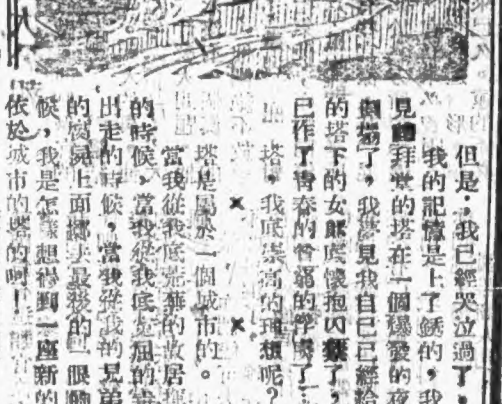 但是，我已經哭泣過了，
我的記憶是上了銹的，我
見禮拜堂的塔在一個愛的夜
倒塌了，我夢見我自己已經給
的塔下的女郎底懷抱囚禁了，
已作了青春的弱的俘虜了…
塔，我底崇高的理想呢？
× ×
塔是屬於一個城市的。
當我從我底荒蕪的故居
的時候，當我從我底冤屈的
出走的時候，當我從我的兄弟
的腐屍上面擲去最後的一眼
候，我是怎樣想得到一座新的
依於城市的塔的啊！